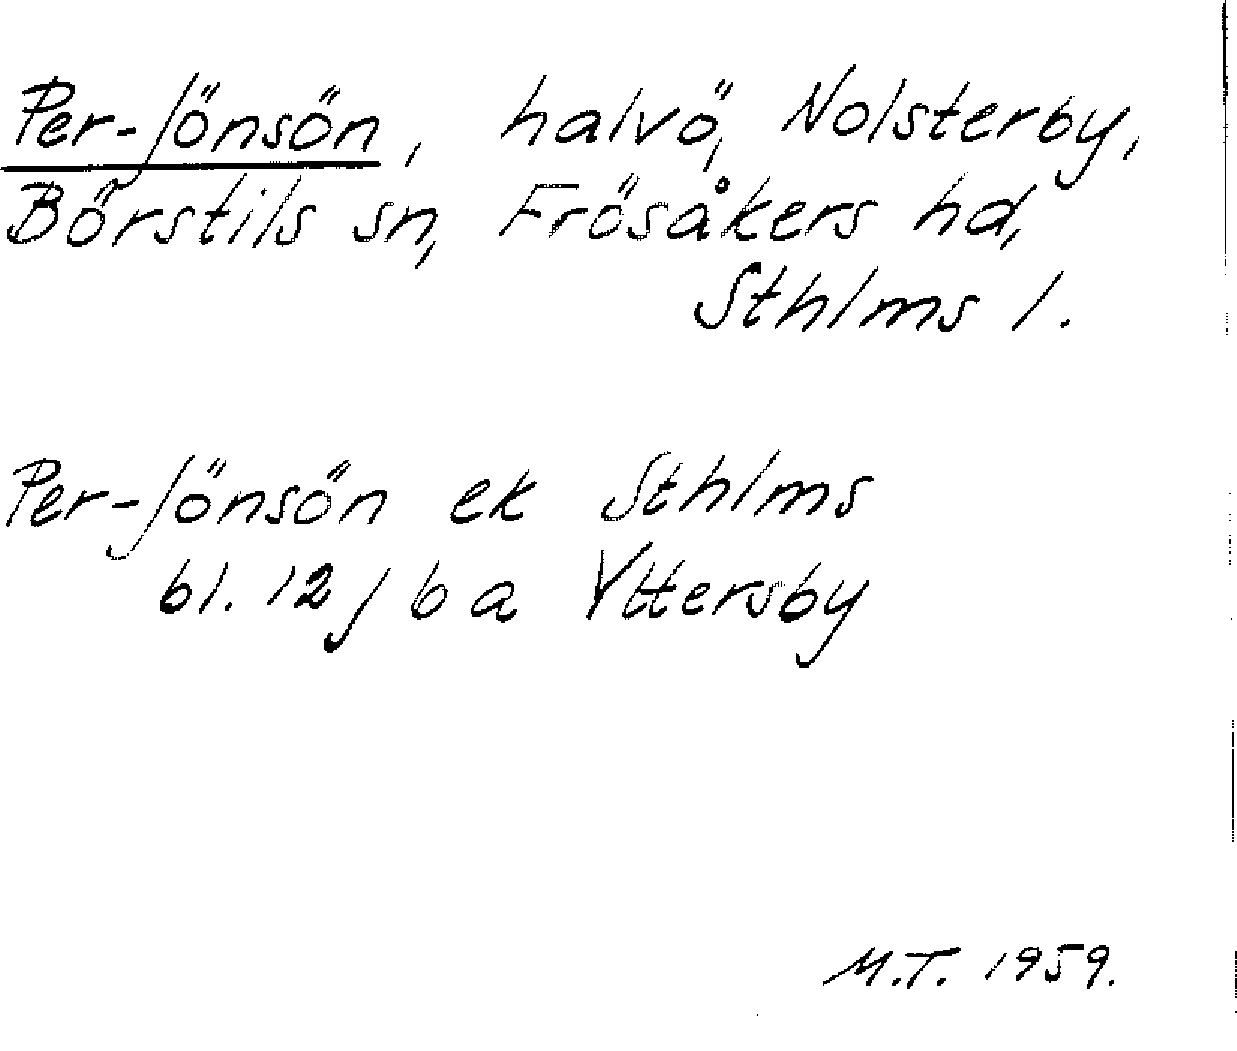 Per-Jönsön, halvö, Nolsterby,
Börstils sn, Frösåkers hd,
Sthlms l.
Per-Jönsön ek Sthlms
bl. 12j 6 a Yttersby
M.T. 1959.